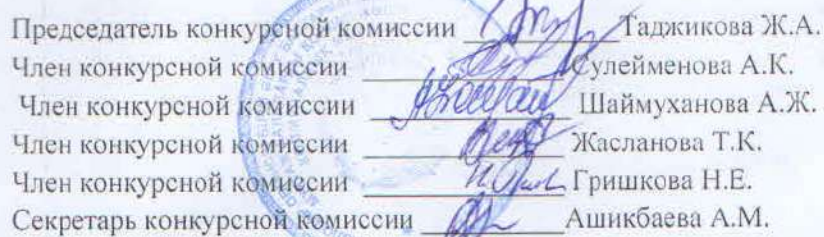 Председатель конкурсной комиссии Таджикова Ж.А.
Член конкурсной комиссии Сулейменова А.К.
Член конкурсной комиссии Шаймуханова А.Ж.
Член конкурсной комиссии Жасланова Т.К.
Член конкурсной комиссии Гришкова Н.Е.
Секретарь конкурсной комиссии Ашикбаева А.М.